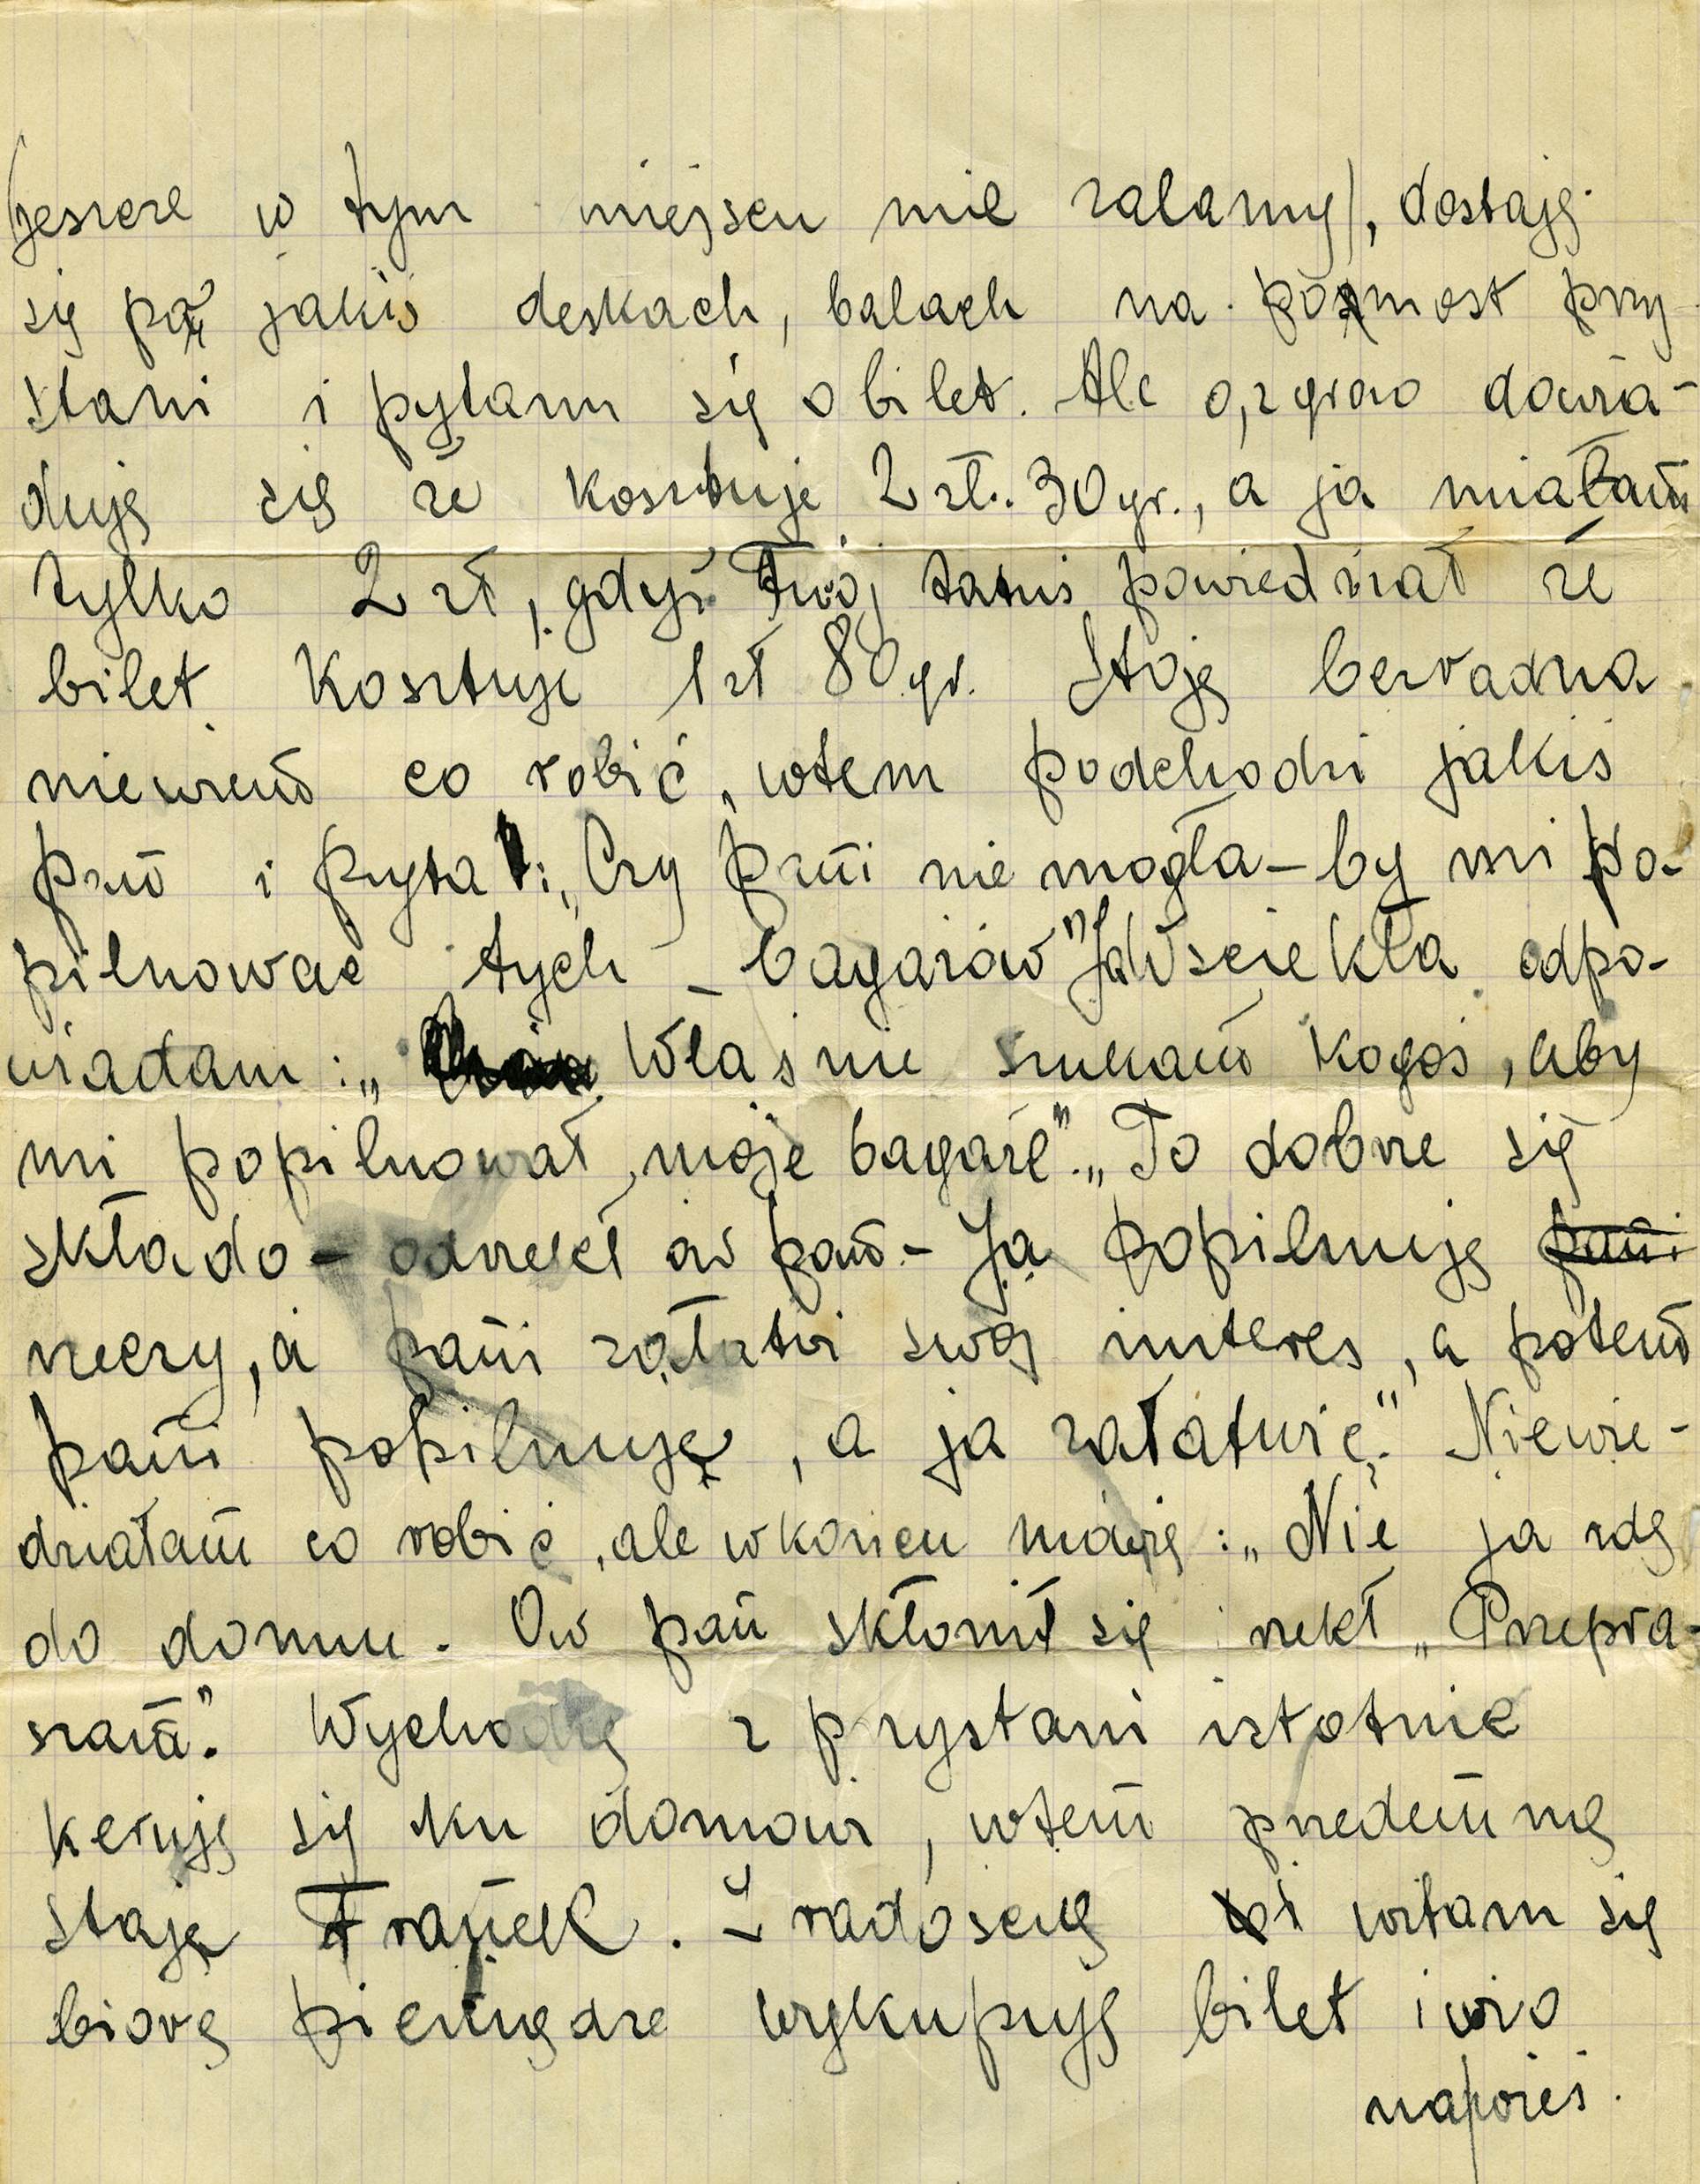 (jeszcze w tym miejscu nie zalany), dostaję
się po jakiś deskach, balach na pomost przy-
stani i pytam się o bilet. Ale o, zgrozo dowia-
duję się że kosztuje 2 zł. 30 gr., a ja miałam
tylko 2 zł, gdyż Twój tatuś powiedział że
bilet kosztuje 1 zł 80 gr. Stoję bezradna
niewiem co robić, wtem podchodzi jakiś
pan i pyta: „Czy pani nie mogła-by mi po-
pilnować tych bagażów" Ja wściekła odpo-
wiadam: „Właśnie szukam kogoś, aby
mi popilnował moje bagaże". „To dobrze się
składo - odrzekł ów pan - Ja popilnuję pani
rzeczy, a pani załatwi swój interes, a potem
pani popilnuje, a ja załatwię." Niewie-
działam co robić, ale wkońcu mówię: „Nie ja idę
do domu. Ów pan skłonił się i rzekł „Przepra-
szam". Wychodzę z przystani istotnie
keruję się ku domowi, wtem przedemną
staje Franek. Z radością witam się
biorę pieniądze wykupuję bilet i wio
naprzeis.